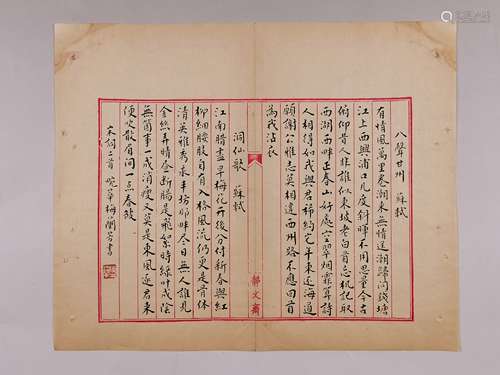 八聲甘州 蘇軾
有情風萬里卷潮來無情送潮歸問錢塘
江上西興浦口几度斜暉不用思量今古
俯仰昔人非誰似東坡老白首忘机記取
西湖西畔正春山好處空翠烟霏算詩
人相得如我與君稀約它年東還海道
願謝公雅志莫相違西州路不應回首
為我沾衣
洞仙歌 蘇軾
江南臘盡早梅花開後分付新春與
柳細腰肢自有入格風流仍更是骨体
清英雅秀永丰坊那畔今日無人誰見
金絲弄晴晝斷腸是飛絮時綠葉成陰
無箇事一成消瘦又莫是東風逐君來
便吹散眉間一点春皺
宋詞二首 畹華梅蘭芳書
靜文齋